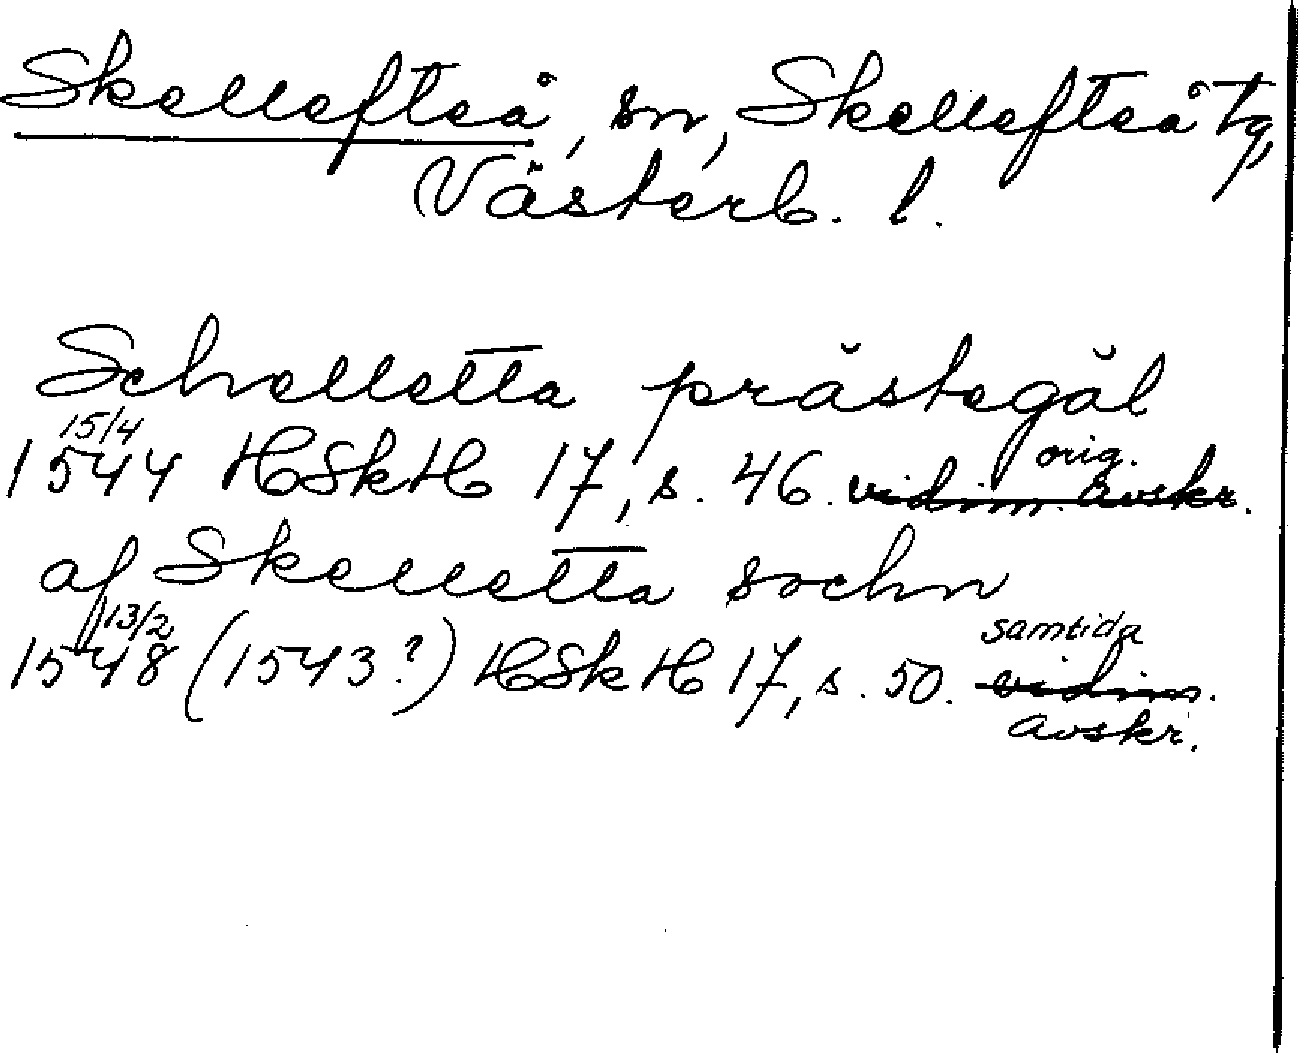 Skellefteå, sn, Skellefteå tg,
Västerb. l.
Schelletta prästegăl
15/4 orig.
1544 HSkH 17, s. 46. vidim. avskr.
af Skelletta sochn
13/2 samtida
1548 (1543?) HSkH 17, s. 50. vidim.
avskr.